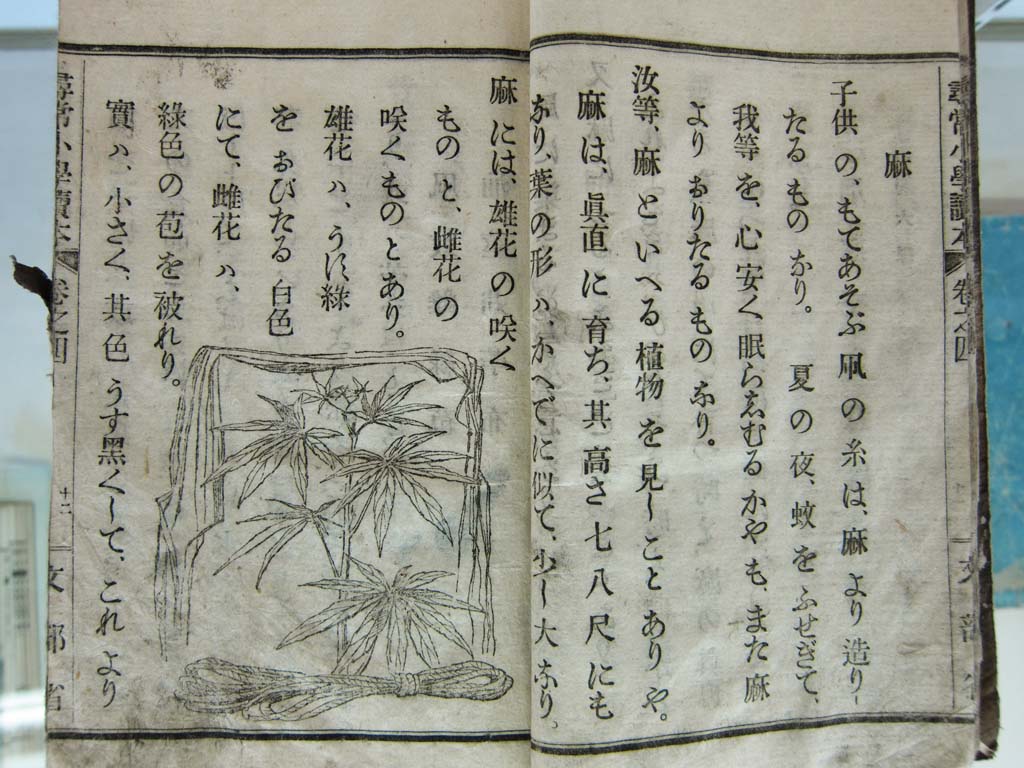 麻
子供の、もてあそぶ凧の糸は、麻より造りし
たるものなり。夏の夜、蚊をふせぎて、
我等を、心安く眠らゑむるかやも、また麻
よりおりたるものなり。
汝等、麻といへる植物を見しことありや。
麻は、眞直に育ち、其高さ七八尺にも
なり、葉の形ハ、かへでに似て、少し大なり。
麻には、雄花の咲く
ものと、雌花の
咲くものとあり。
雄花ハ、うす緑
をおびたる白色
にて、雌花ハ、
緑色の苞を被れり。
實ハ、小さく、其色うす黑くして、これより
尋常小學讀本
卷之四
十二
文部省